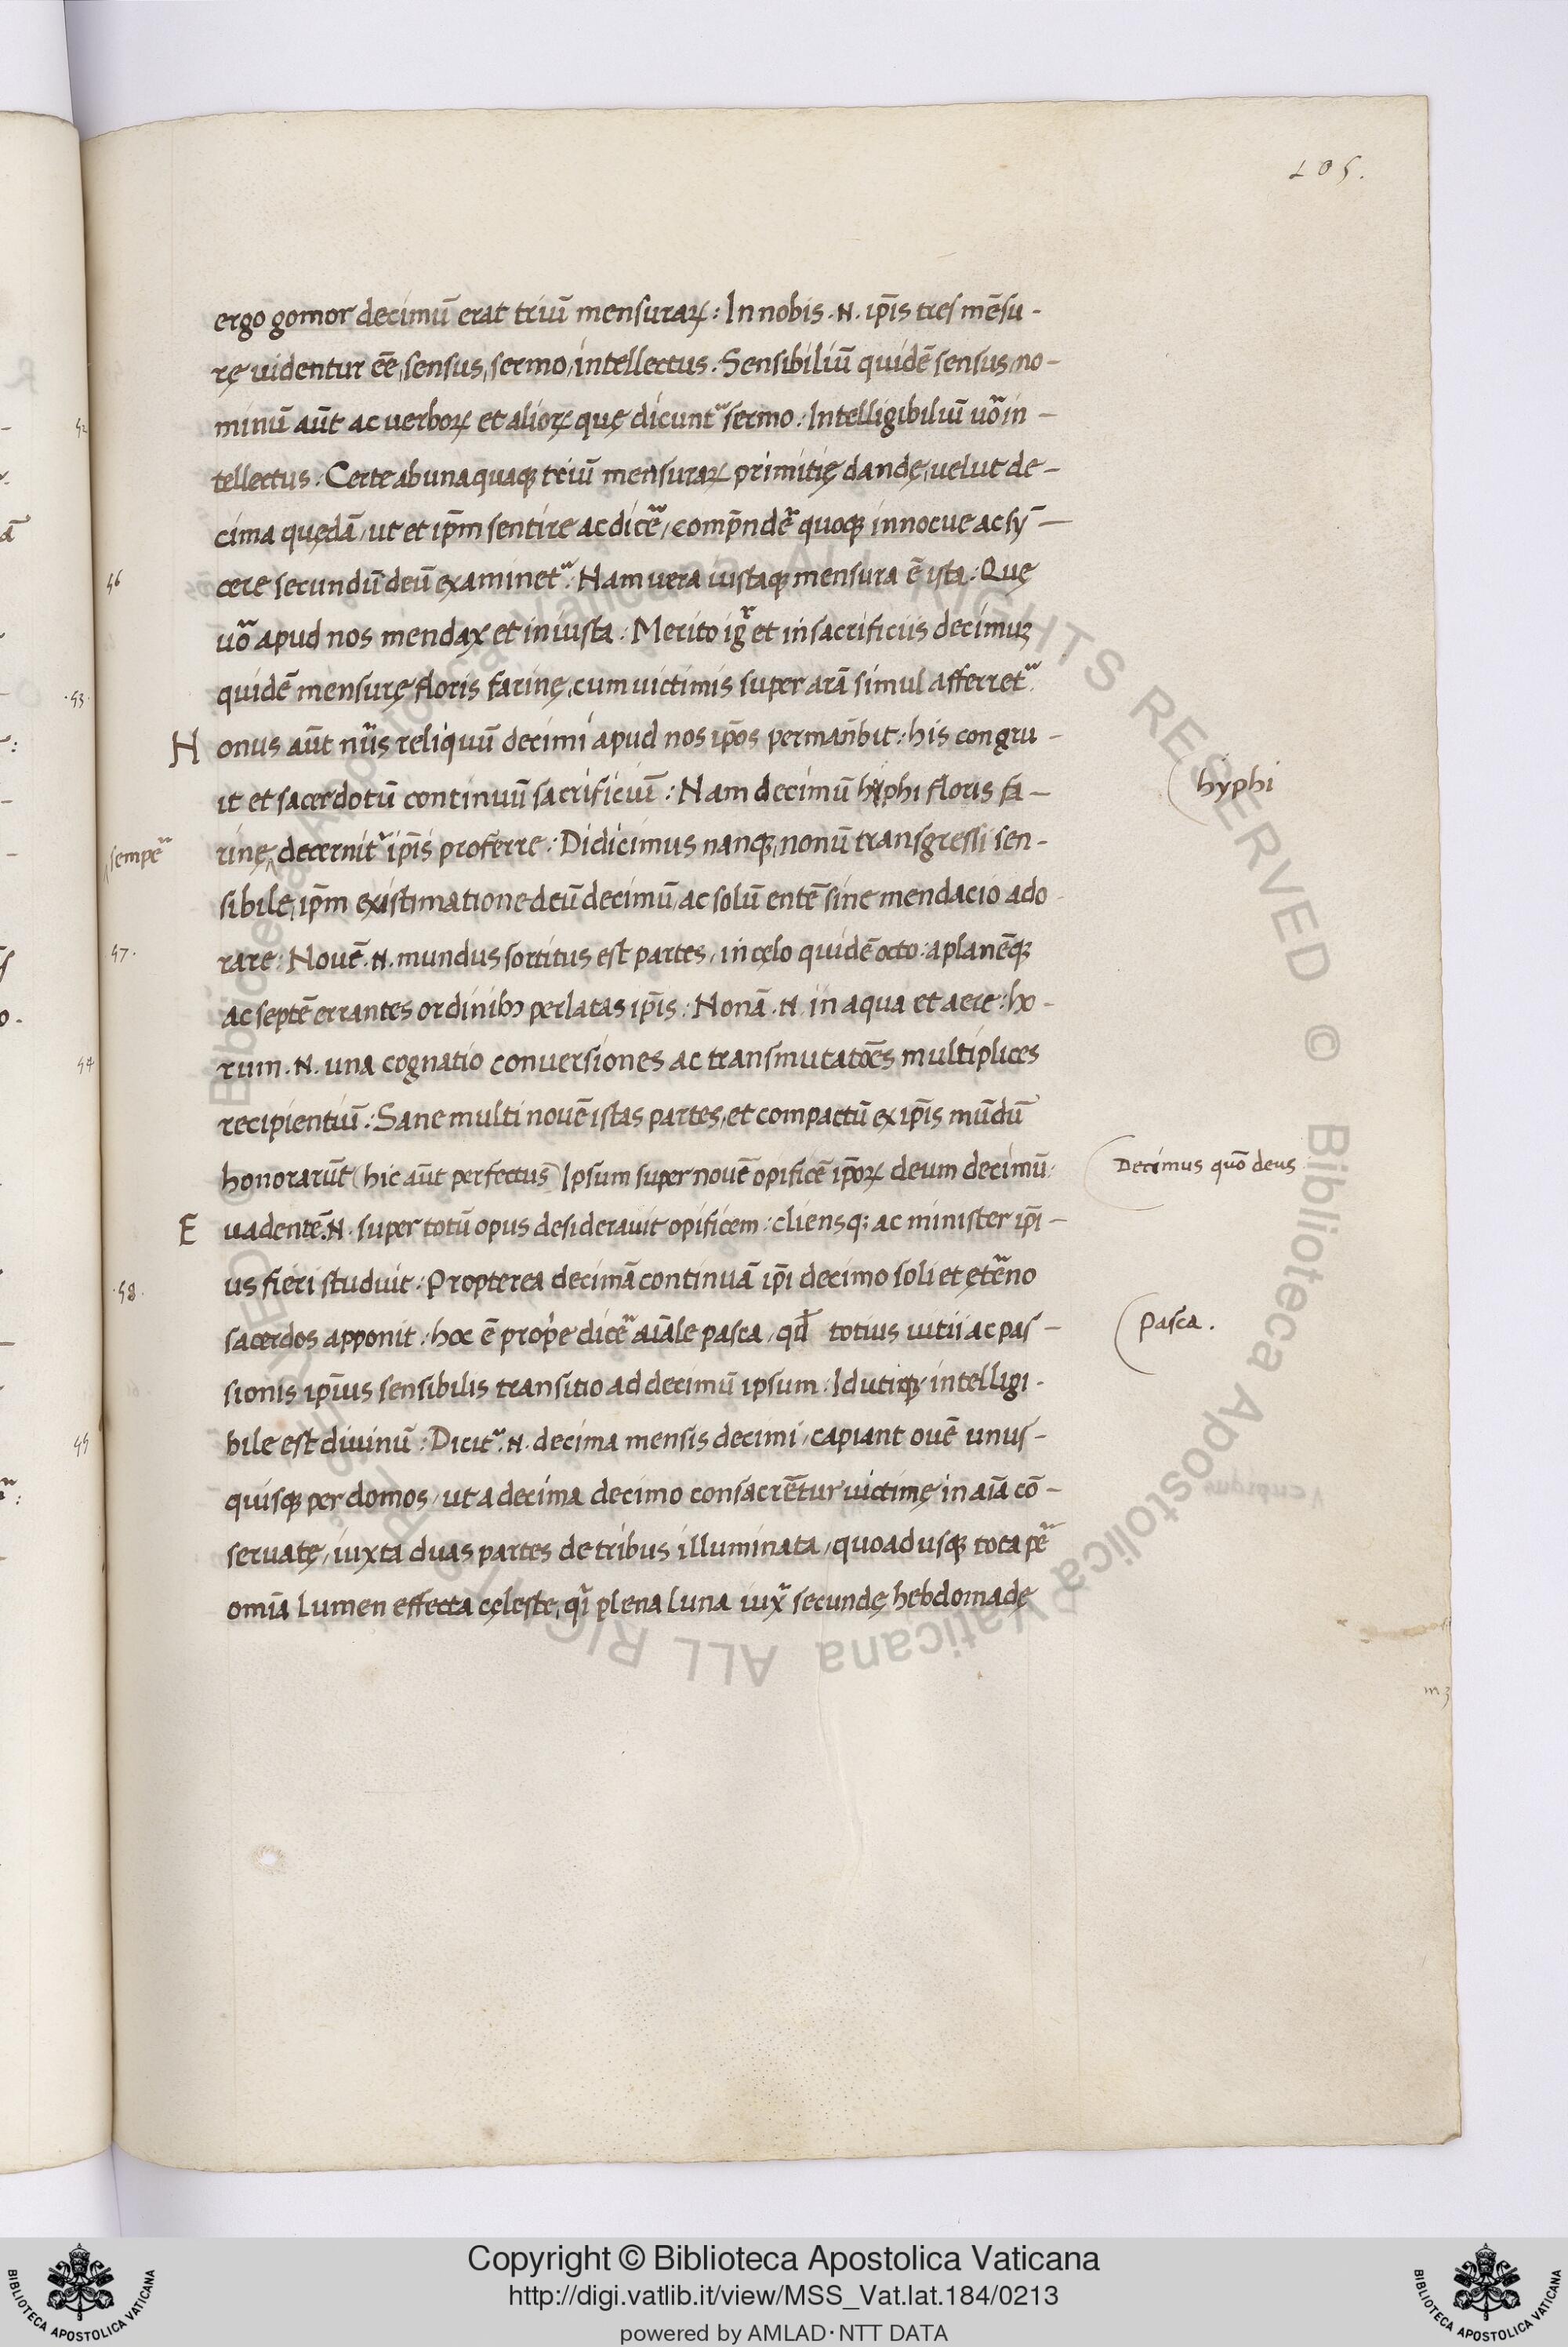 105.
ergo gomor decimū erat triū mensuraꝝ: In nobis .N. ip̄is tres mēsu-
rę uidentur eē, sensus, sermo, intellectus. Sensibiliū quidē sensus, no-
minū aūt ac uerboꝝ et alioꝝ quę dicunt᷑ sermo. Intelligibiliū uō in-
tellectus. Certe ab unaquaqꝫ triū mensuraꝝ primitię dandę, uelut de-
cima quędā, ut et ip̄m sentire ac dicē, comp̄ndē quoqꝫ innocue ac sy̅-
46
cere secundū deū examinet᷑. Nam uera iustaqꝫ mensura ē ista: Quę
uō apud nos mendax et iniusta: Merito igr̄ et in sacrificiis decimuꝫ
quidē mensurę floris farinę, cum uictimis super arā simul afferret᷑
N onus aūt nūis reliquū decimi apud nos ip̄os permanēbit: his congru-
it et sacerdotū continuū sacrificiū: Nam decimū hyphi floris fa-
hyphi
sempē
rinę, decernit᷑ ip̄is proferre: Didicimus nanqꝫ, nonū transgressi sen-
sibile, ip̄m existimatione deū decimū, ac solū entē sine mendacio ado
47.
rare: Nouē .N. mundus sortitus est partes, in cęlo quidē octo: aplanēqꝫ
ac septē errantes ordinibꝫ perlatas ip̄is: Nonā .N. in aqua et aere: ho-
rum .N. una cognatio conuersiones ac transmutatōēs multiplices
recipientiū: Sane multi nouē istas partes, et compactū ex ip̄is mūdū
honorarūt (hic aūt perfectus) Ipsum super nouē opificē ip̄oꝝ deum decimū:
Decimus quō deus
E uadentē .N. super totū opus desiderauit opificem: cliensq; ac minister ip̄i-
us fieri studuit: Propterea decimā continuā ip̄i decimo soli et ętēno
.48.
sacerdos apponit: hoc ē prop̄e dicē aīale pasca, qđ totius uitii ac pas-
Pasca.
sionis ip̄ius sensibilis transitio ad decimū ipsum: Id utiqꝫ intelligi-
bile est diuinū: Dicit᷑ .N. decima mensis decimi, capiant ouē unus-
quisqꝫ per domos, ut a decima decimo consacrētur uictimę in aīa cō-
seruatę, iuxta duas partes de tribus illuminata, quoadusqꝫ tota pē
omīa lumen effecta cęleste, qī plena luna iux̄ secundę hebdomadę
Copyright © Biblioteca Apostolica Vaticana
http://digi.vatlib.it/view/MSS_Vat.lat.184/0213
powered by AMLAD·NTT DATA